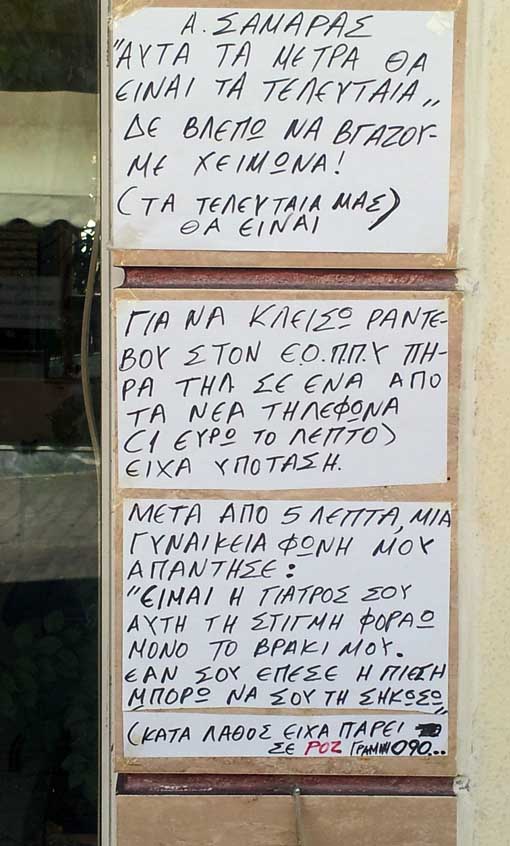 Α. ΣΑΜΑΡΑΣ
"ΑΥΤΑ ΤΑ ΜΕΤΡΑ ΘΑ
ΕΙΝΑΙ ΤΑ ΤΕΛΕΥΤΑΙΑ,,
ΔΕ ΒΛΕΠΩ ΝΑ ΒΓΑΖΟΥ-
ΜΕ ΧΕΙΜΩΝΑ!
(ΤΑ ΤΕΛΕΥΤΑΙΑ ΜΑΣ)
ΘΑ ΕΙΝΑΙ
ΓΙΑ ΝΑ ΚΛΕΙΣΩ ΡΑΝΤΕ-
ΒΟΥ ΣΤΟΝ Ε.Ο.Π.Π.Υ ΠΗ-
ΡΑ ΤΗΛ ΣΕ ΕΝΑ ΑΠΟ
ΤΑ ΝΕΑ ΤΗΛΕΦΩΝΑ
(1 ΕΥΡΩ ΤΟ ΛΕΠΤΟ)
ΕΙΧΑ ΥΠΟΤΑΣΗ.
ΜΕΤΑ ΑΠΟ 5 ΛΕΠΤΑ, ΜΙΑ
ΓΥΝΑΙΚΕΙΑ ΦΩΝΗ ΜΟΥ
ΑΠΑΝΤΗΣΕ:
"ΕΙΜΑΙ Η ΓΙΑΤΡΟΣ ΣΟΥ
ΑΥΤΗ ΤΗ ΣΤΙΓΜΗ ΦΟΡΑΩ
ΜΟΝΟ ΤΟ ΒΡΑΚΙ ΜΟΥ.
ΕΑΝ ΣΟΥ ΕΠΕΣΕ Η ΠΙΕΣΗ
ΜΠΟΡΩ ΝΑ ΣΟΥ ΤΗ ΣΗΚΩΣΩ,,
(ΚΑΤΑ ΛΑΘΟΣ ΕΙΧΑ ΠΑΡΕΙ
ΣΕ ΡΟΖ ΓΡΑΜΜΗ 090...